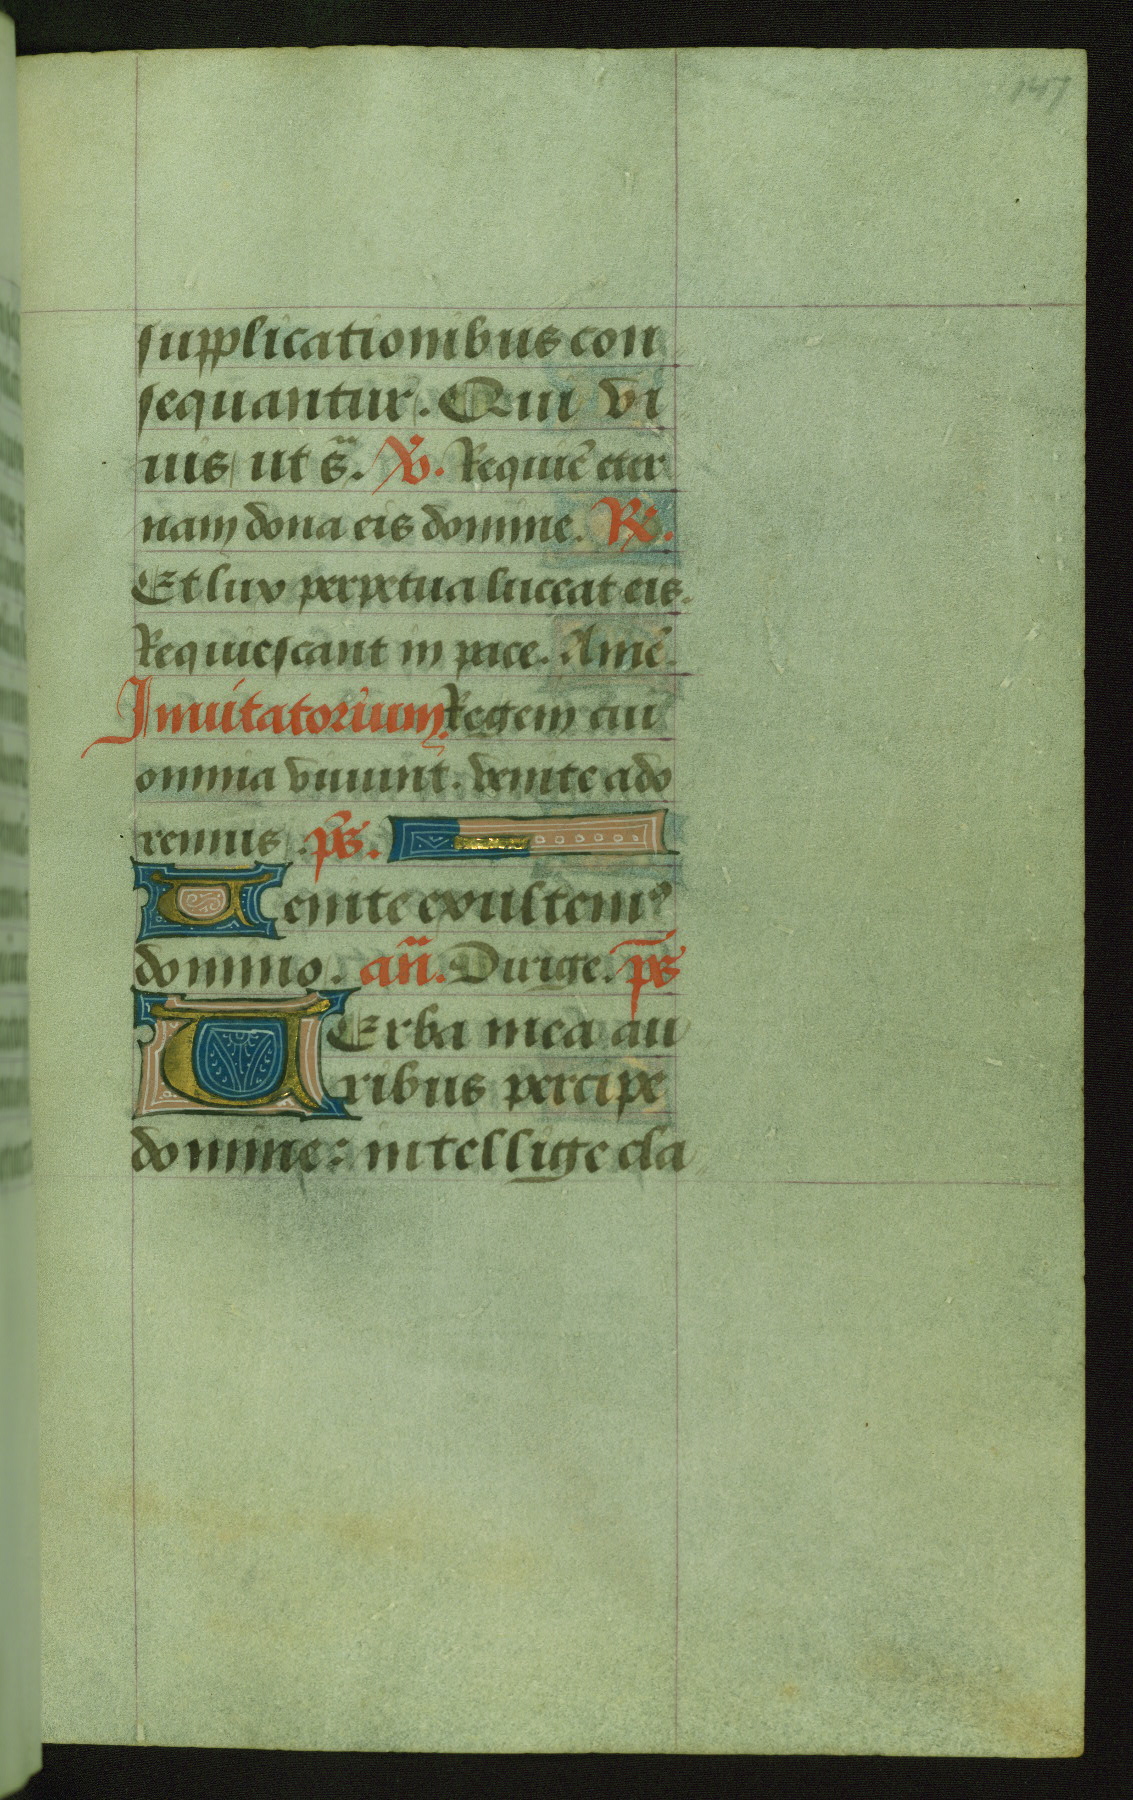 147
supplicationibus con
sequantur. Qui vi
uis ut s̄. V̄. Requiē eter
nam dona eis domine. R̄.
Et lux perpetua luceat eis.
Requiescant in pace. Amē.
Inuitatorium. Regem cui
omnia viuunt. venite ado
remus. p̄s.
Uenite exultemꝰ
domino. an̄. Dirige. p̄s
UErba mea au
ribus percipe
domine: intellige cla